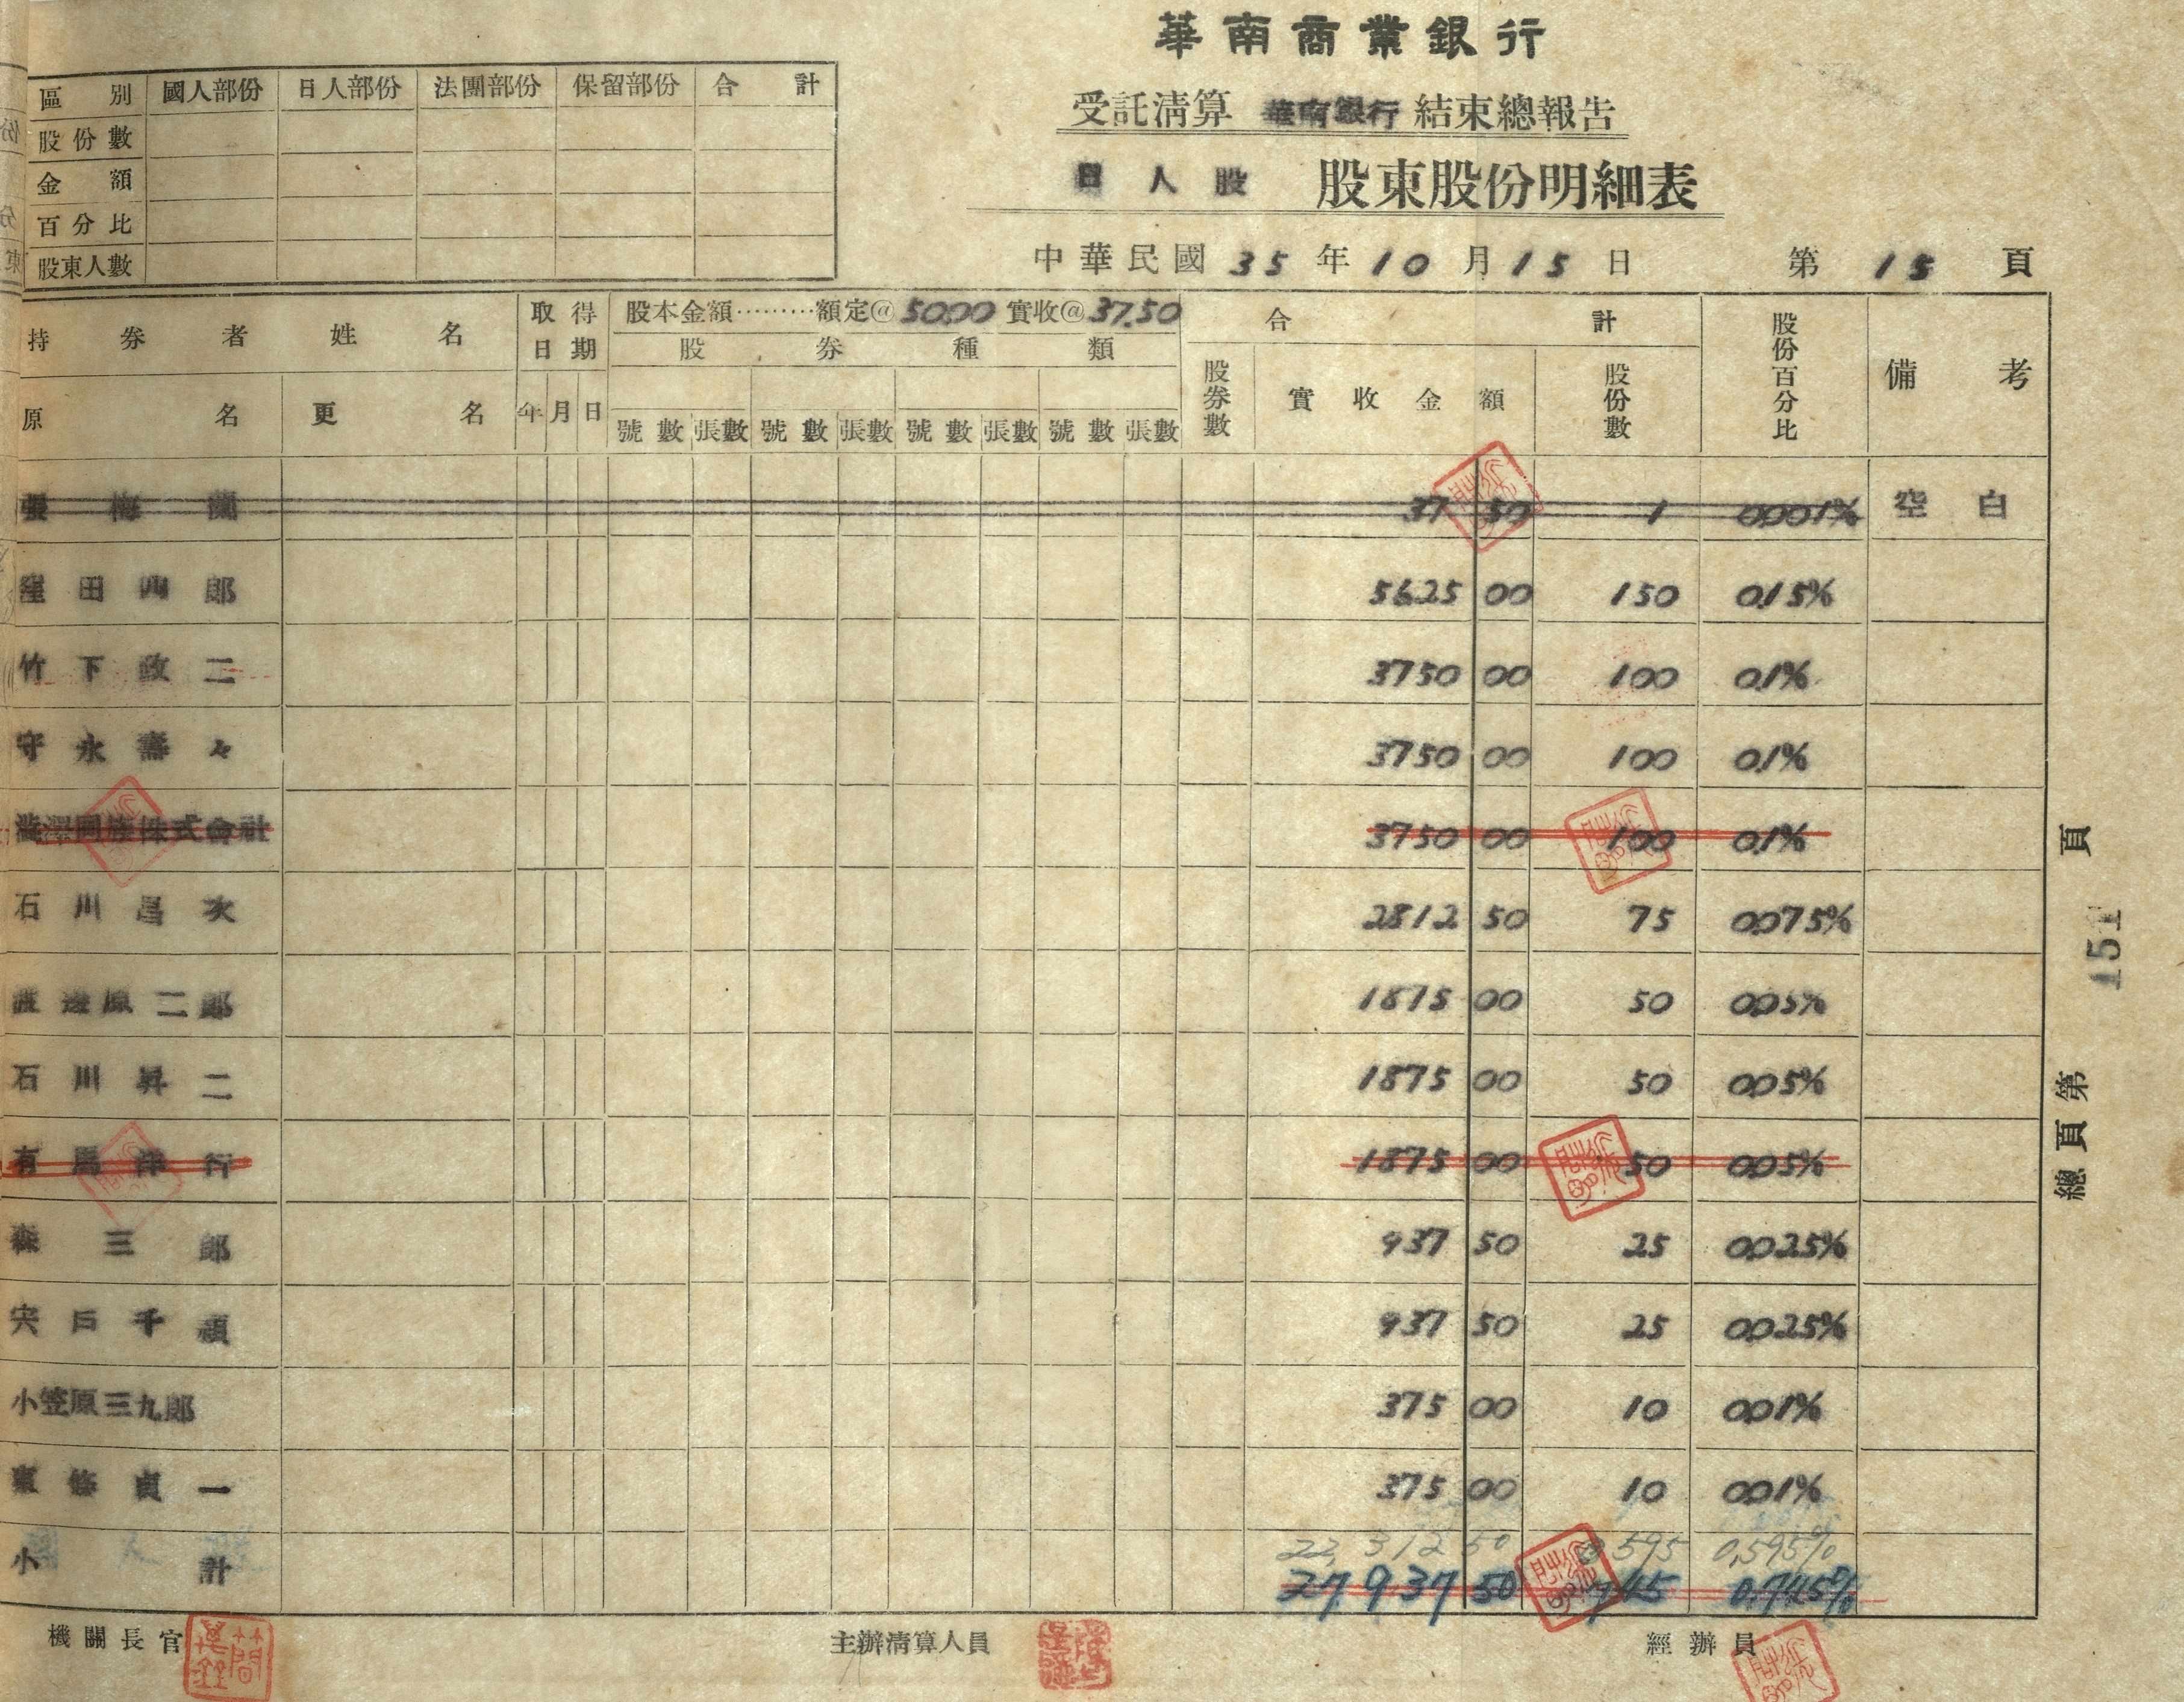 華南商業銀行
受託清算 華南銀行 結束總報告
日人股 股東股份明細表
中華民國 35 年 10 月 15 日 第 15 頁
區別 國人部份 日人部份 法團部份 保留部份 合計
股份數
金額
百分比
股東人數
持券者姓名 取得日期 股本金額………額定@5000 實收@37.50 合計 股份百分比 備考
股券種類
原名 更名 年 月 日 號數 張數 號數 張數 號數 張數 號數 張數 股券數 實收金額 股份數
張梅蘭 37 50 1 0.001% 空白
窪田四郎 5625 00 150 0.15%
竹下政二 3750 00 100 0.1%
守永壽々 3750 00 100 0.1%
澁澤同族株式會社 3750 00 100 0.1%
石川昌次 2812 50 75 0.075%
渡邊原二郎 1875 00 50 0.05%
石川昇二 1875 00 50 0.05%
有馬洋行 1875 00 50 0.05%
森三郎 937 50 25 0.025%
宍戶千穎 937 50 25 0.025%
小笠原三九郎 375 00 10 0.01%
東條貞一 375 00 10 0.01%
22,312 50 595 0.595%
小計 27,937 50 745 0.745%
機關長官 主辦清算人員 經辦員
總頁第 151 頁